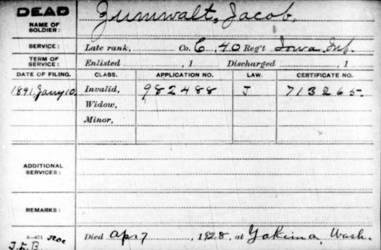 DEAD
NAME OF SOLDIER: Zumwalt, Jacob.
SERVICE: Late rank, Co. C, 40 Reg't Iowa Inf.
TERM OF SERVICE: Enlisted , 1 Discharged , 1
DATE OF FILING. CLASS. APPLICATION NO. LAW. CERTIFICATE NO.
1891, Jany 10. Invalid, 982488 J 713265.
Widow,
Minor,
ADDITIONAL SERVICES:
REMARKS:
Died Apr 7, 1928, at Yakima, Wash.